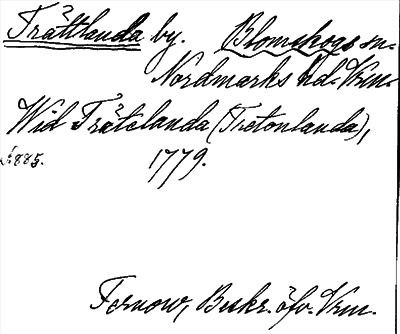 Trättlanda by. Blomskogs sn.
Nordmarks hd. Vrm.
Wid Trätelanda (Tretonlanda),
s. 885. 1779.
Fernow, Beskr. öfv. Vrm.